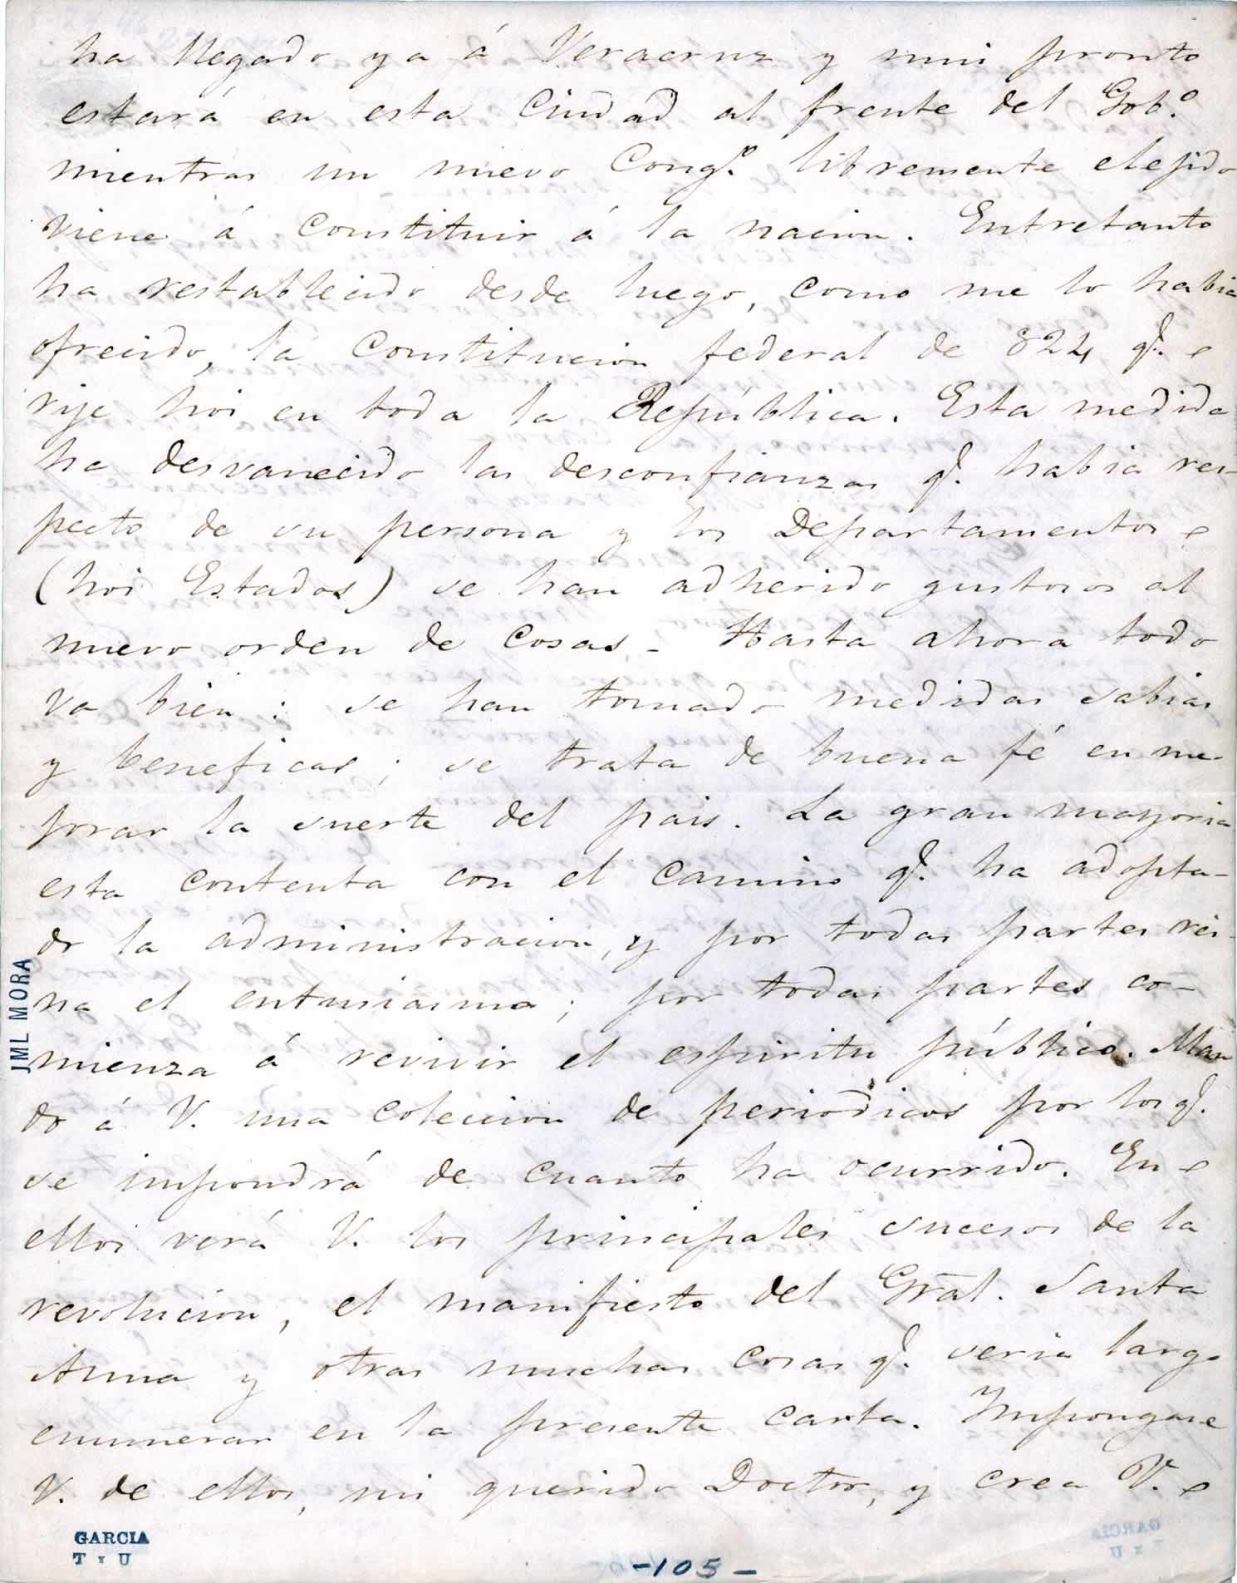 ha llegado ya á Veracruz y mui pronto
estará en esta Ciudad al frente del Gob.º
mientras un nuevo Cong.º libremente elejido
viene á constituir á la nacion. Entretanto
ha restablecido desde luego, como me lo habia
ofrecido, la Constitucion federal de 824 q.e
rije hoi en toda la República. Esta medida
ha desvanecido las desconfianzas q.e habia res-
pecto de su persona y los Departamentos
(hoi Estados) se han adherido gustosos al
nuevo orden de cosas - Hasta ahora todo
va bien: se han tomado medidas sabias
y beneficas; se trata de buena fé en me-
jorar la suerte del pais. La gran mayoria
esta contenta con el camino q.e ha adopta-
do la administracion, y por todas partes rei-
na el entusiasmo; por todas partes co-
mienza á revivir el espiritu público. Man
do á V. una coleccion de periodicos por los q.e
se impondrá de cuanto ha ocurrido. En
ellos verá V. los principales sucesos de la
revolucion, el manifiesto del Gral. Santa
Anna y otras muchas cosas q.e seria largo
enumerar en la presente carta. Impongase
V. de ellos, mi querido Doctor, y crea V.
JML MORA
GARCIA
T Y U
-105-